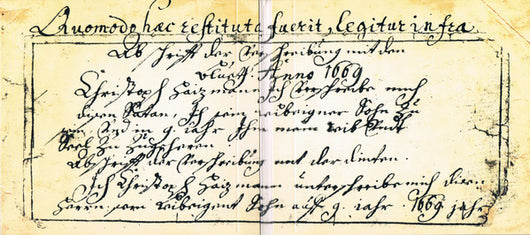 Quomodo hæc restituta fuerit, legitur infra.
Abschrifft der Verschreibung mit dem
bluett. Anno 1669
Christoph Haizmann Ich verschreibe mich
disen Satan, Ich sein leibeigner Sohn zu
sein, und in 9. iahr Ihm mein leib undt
Seel zu zugeheren.
Abschrifft der Verschreibung mit der dinten.
Ich Christoph Haizmann unterschreibe mich disen
Herrn, sein leibeigent Sohn auff 9. iahr. 1669 jahr